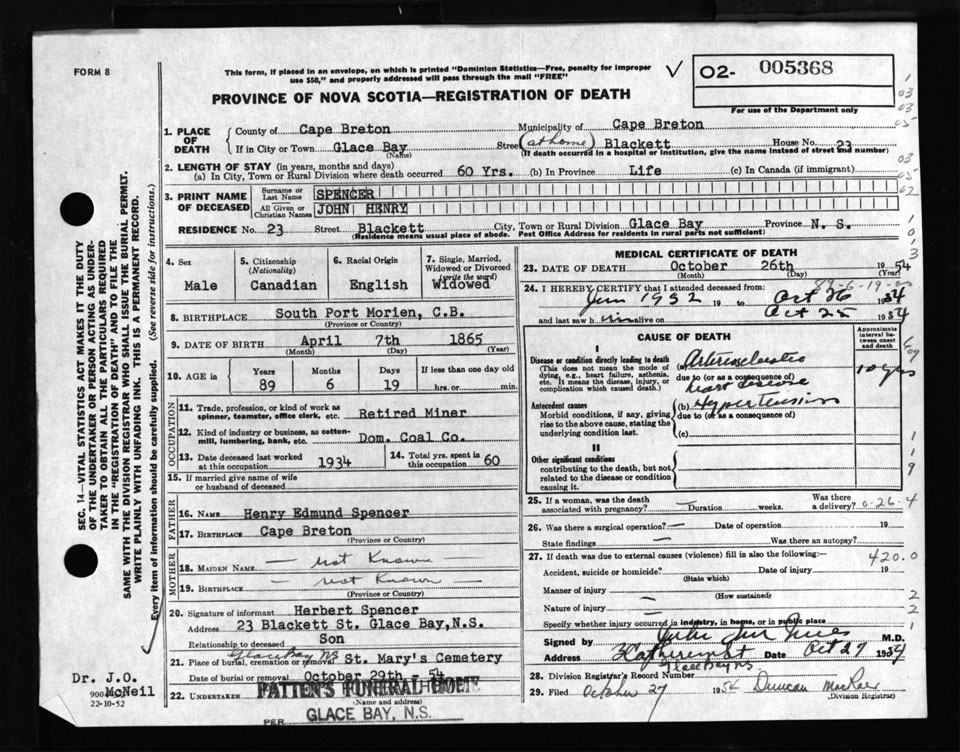 FORM 8
This form, if placed in an envelope, on which is printed "Dominion Statistics—Free, penalty for improper
use $50," and properly addressed will pass through the mail "FREE"
PROVINCE OF NOVA SCOTIA—REGISTRATION OF DEATH
02- 005368
For use of the Department only
1. PLACE OF DEATH
County of Cape Breton Municipality of Cape Breton
If in City or Town Glace Bay Street (at home) Blackett House No. 23
(Name) (If death occurred in a hospital or institution, give the name instead of street and number)
2. LENGTH OF STAY (in years, months and days)
(a) In City, Town or Rural Division where death occurred 60 Yrs. (b) In Province Life (c) In Canada (if immigrant)
3. PRINT NAME OF DECEASED
Surname or Last Name SPENCER
All Given or Christian Names JOHN HENRY
RESIDENCE No. 23 Street Blackett City, Town or Rural Division Glace Bay Province N. S.
(Residence means usual place of abode. Post Office Address for residents in rural parts not sufficient)
4. Sex
Male
5. Citizenship
(Nationality)
Canadian
6. Racial Origin
English
7. Single, Married,
Widowed or Divorced
(write the word)
Widowed
8. BIRTHPLACE South Port Morien, C.B.
(Province or Country)
9. DATE OF BIRTH April 7th 1865
(Month) (Day) (Year)
10. AGE in Years Months Days If less than one day old
89 6 19 hrs. or min.
OCCUPATION
11. Trade, profession, or kind of work as
spinner, teamster, office clerk, etc. Retired Miner
12. Kind of industry or business, as cotton-
mill, lumbering, bank, etc. Dom. Coal Co.
13. Date deceased last worked
at this occupation 1934
14. Total yrs. spent in
this occupation 60
15. If married give name of wife
or husband of deceased
FATHER
16. NAME Henry Edmund Spencer
17. BIRTHPLACE Cape Breton
(Province or Country)
MOTHER
18. MAIDEN NAME — not Known —
19. BIRTHPLACE — not Known —
(Province or Country)
20. Signature of informant Herbert Spencer
Address 23 Blackett St. Glace Bay,N.S.
Relationship to deceased Son
Glace Bay NS
21. Place of burial, cremation or removal St. Mary's Cemetery
Date of burial or removal October 29th 54
22. UNDERTAKER PATTEN'S FUNERAL HOME
(Name and address)
PER GLACE BAY, N.S.
MEDICAL CERTIFICATE OF DEATH
23. DATE OF DEATH October 26th 1954
(Month) (Day) (Year)
89-6-19
24. I HEREBY CERTIFY that I attended deceased from
Jun 1952 19 to Oct 26 1954
and last saw him alive on Oct 25 1954
CAUSE OF DEATH
Approximate
interval be-
tween onset
and death
I
Disease or condition directly leading to death
(This does not mean the mode of
dying, e.g., heart failure, asthenia,
etc. It means the disease, injury, or
complication which caused death.)
(a) Arteriosclerotic
due to (or as a consequence of)
heart disease
10 yrs
Antecedent causes
Morbid conditions, if any, giving
rise to the above cause, stating the
underlying condition last.
(b) Hypertension
due to (or as a consequence of)
(c)
II
Other significant conditions
contributing to the death, but not
related to the disease or condition
causing it.
25. If a woman, was the death
associated with pregnancy? — Duration weeks. Was there
a delivery?
26. Was there a surgical operation? — Date of operation 19
State findings — Was there an autopsy?
27. If death was due to external causes (violence) fill in also the following:— 420.0
Accident, suicide or homicide? Date of injury 19
(State which)
Manner of injury —
(How sustained)
Nature of injury —
Specify whether injury occurred in industry, in home, or in public place
Signed by M.D.
Address Catherine St Date Oct 27 1954
Glace Bay NS
28. Division Registrar's Record Number
29. Filed October 27 1954 Duncan MacRae
(Division Registrar)
SEC. 14—VITAL STATISTICS ACT MAKES IT THE DUTY
OF THE UNDERTAKER OR PERSON ACTING AS UNDER-
TAKER TO OBTAIN ALL THE PARTICULARS REQUIRED
IN THE "REGISTRATION OF DEATH" AND TO FILE THE
SAME WITH THE DIVISION REGISTRAR WHO SHALL ISSUE THE BURIAL PERMIT.
WRITE PLAINLY WITH UNFADING INK. THIS IS A PERMANENT RECORD.
Every item of information should be carefully supplied. (See reverse side for instructions.)
Dr. J.O.
McNeil
900
22-10-52